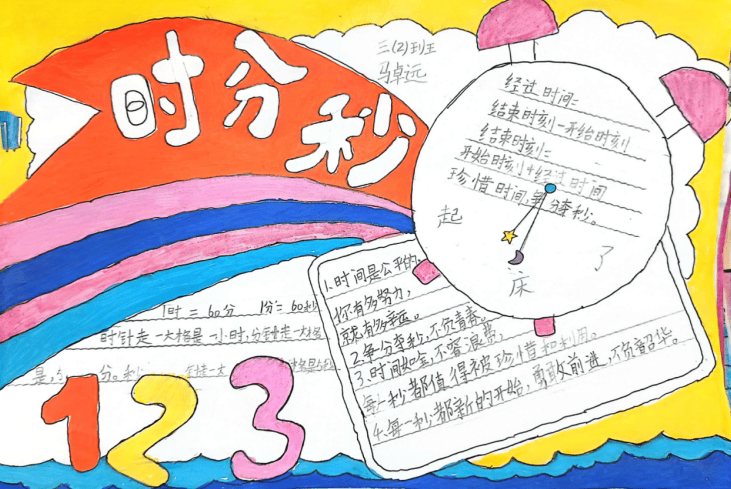 时分秒
三(2)班
马卓远
经过时间=
结束时刻-开始时刻
结束时刻=
开始时刻+经过时间
珍惜时间,争分夺秒。
起
床
了
1.时间是公平的,
你有多努力,
就有多幸运。
2.争分夺秒,不负青春。
3.时间如金,不容浪费,
每一秒都值得被珍惜和利用。
4.每一秒都新的开始,勇敢前进,不负韶华。
1时=60分 1分=60秒
时针走一大格是一小时,分针走一大格
是 分。
123